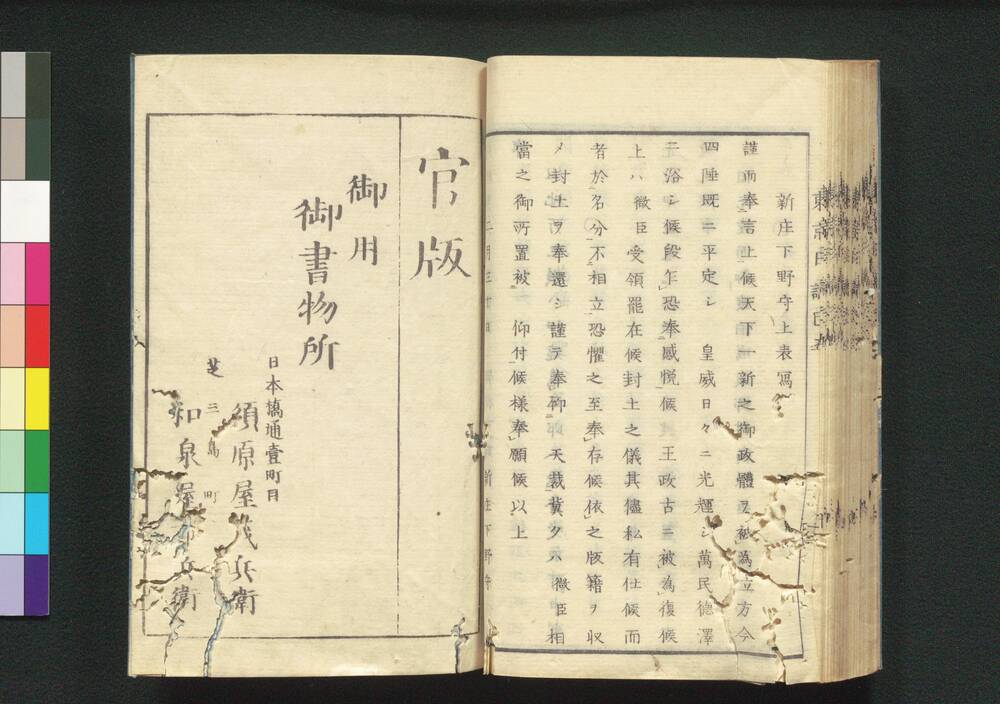 新庄下野守上表寫
謹而奉言上候天下一新之御政體ヲ被為立方今
四陲既ニ平定シ　皇威日々ニ光輝シ萬民德澤
ニ浴シ候段乍恐奉感悦候　王政古ニ被為復候
上ハ　微臣受領罷在候封土之儀其儘私有仕候而
者於名分不相立恐懼之至奉存候依之版籍ヲ収
メ封土ヲ奉還シ謹テ奉仰　天裁冀クハ　微臣相
當之御所置被　仰付候様奉願候以上
二月三十日　新庄下野守
官版
御用
御書物所
日本橋通壹町目
須原屋茂兵衛
芝三島町
和泉屋市兵衛